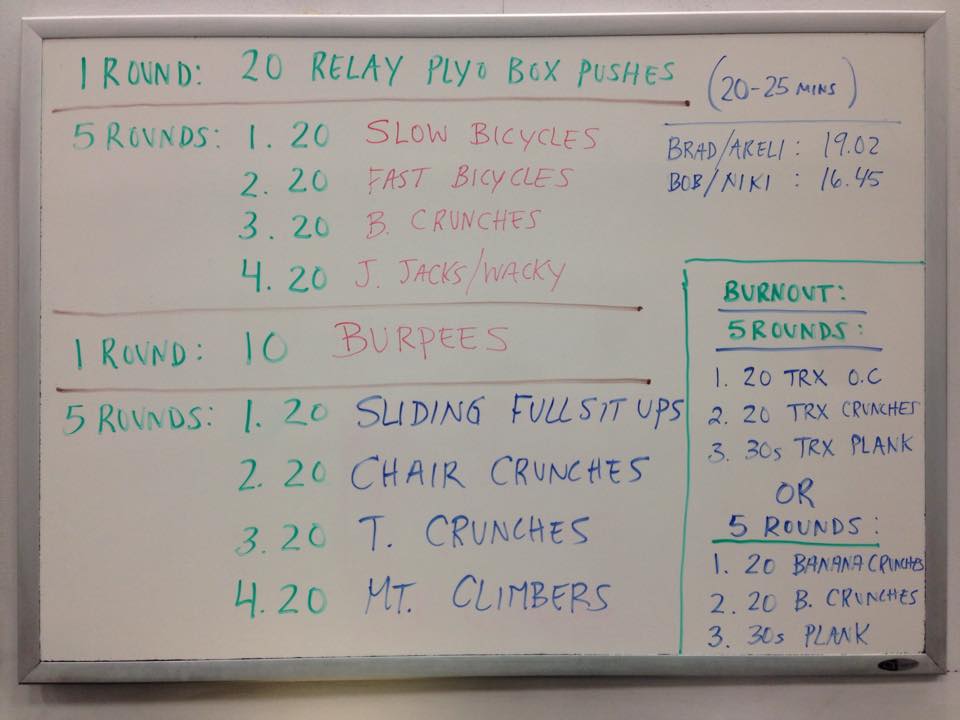 1 ROUND: 20 RELAY PLYO BOX PUSHES
(20-25 MINS)
BRAD/ARELI: 19.02
BOB/NIKI: 16.45
5 ROUNDS: 1. 20 SLOW BICYCLES
2. 20 FAST BICYCLES
3. 20 B. CRUNCHES
4. 20 J. JACKS/WACKY
1 ROUND: 10 BURPEES
5 ROUNDS: 1. 20 SLIDING FULL SIT UPS
2. 20 CHAIR CRUNCHES
3. 20 T. CRUNCHES
4. 20 MT. CLIMBERS
BURNOUT:
5 ROUNDS:
1. 20 TRX O.C
2. 20 TRX CRUNCHES
3. 30s TRX PLANK
OR
5 ROUNDS:
1. 20 BANANA CRUNCHES
2. 20 B. CRUNCHES
3. 30s PLANK